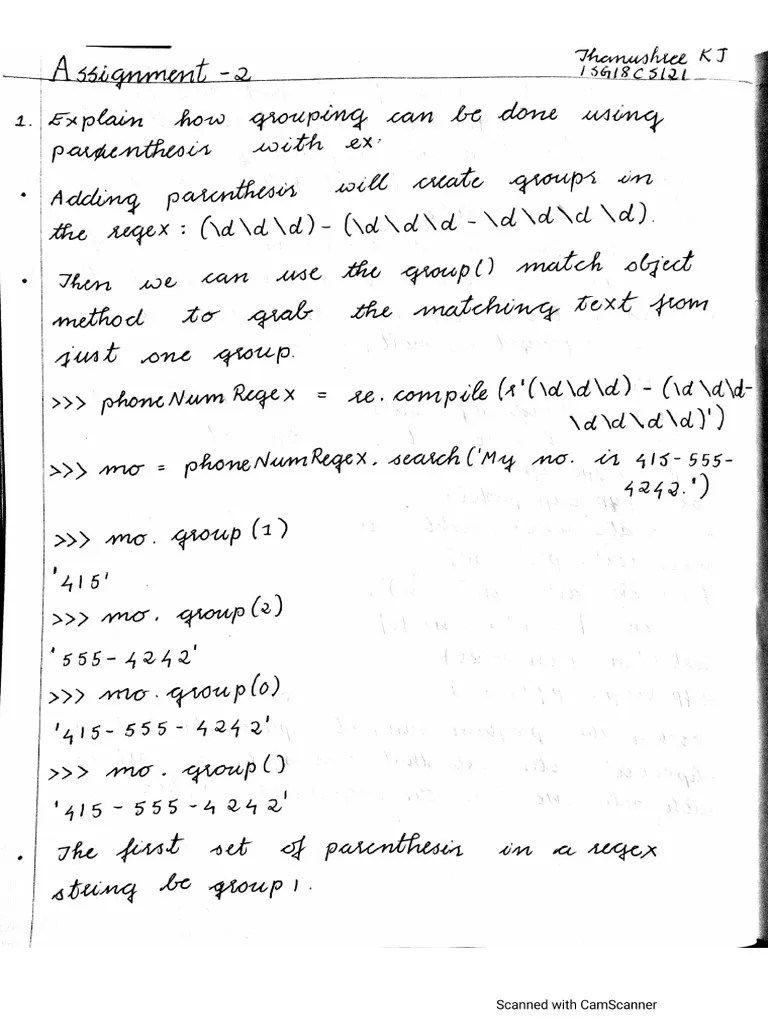 Assignment -2
Thanushree KJ
1SG18CS121
1. Explain how grouping can be done using
pardenthesis with ex.
• Adding parenthesis will create groups in
the regex : (\d\d\d) - (\d\d\d - \d\d\d\d).
• Then we can use the group() match object
method to grab the matching text from
just one group.
>>> phoneNumRegex = re.compile(r'(\d\d\d) - (\d\d\d-
\d\d\d\d)')
>>> mo = phoneNumRegex.search('My no. is 415-555-
4242.')
>>> mo. group (1)
'415'
>>> mo. group(2)
'555-4242'
>>> mo.group(0)
'415-555-4242'
>>> mo. group()
'415-555-4242'
• The first set of parenthesis in a regex
string be group 1.
Scanned with CamScanner